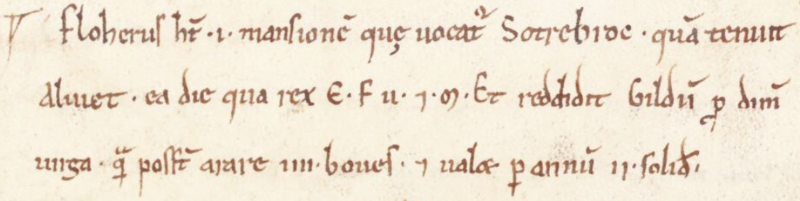 floherus ht̄ · i · mansionē quę uocat᷑ Sotrebroc · quā tenuit
Aluuet · ea die qua rex E · F u · ⁊ · m · Et reddidit Gildū ꝑ dim̄
uirga · q̄ poss̄t arare iiii · boues · ⁊ ualæ ꝑ annū ii · solid̄ ·